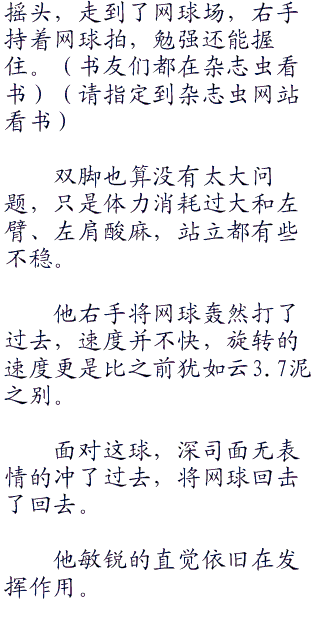 摇头，走到了网球场，右手
持着网球拍，勉强还能握
住。（书友们都在杂志虫看
书）（请指定到杂志虫网站
看书）
双脚也算没有太大问
题，只是体力消耗过大和左
臂、左肩酸麻，站立都有些
不稳。
他右手将网球轰然打了
过去，速度并不快，旋转的
速度更是比之前犹如云3.7泥
之别。
面对这球，深司面无表
情的冲了过去，将网球回击
了回去。
他敏锐的直觉依旧在发
挥作用。